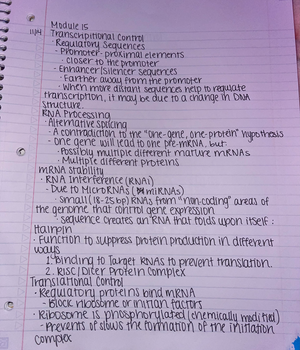 Module 15
11/4 Transcriptional Control
· Regulatory Sequences
- Promoter-proximal elements
- closer to the promoter
- Enhancer/silencer sequences
- Farther away from the promoter
- When more distant sequences help to regulate
transcription, it may be due to a change in DNA
structure.
RNA Processing
· Alternative splicing
- A contradiction to the "one-gene, one-protein" hypothesis
- One gene will lead to one pre-mRNA, but:
- Possibly multiple different mature mRNAs
- Multiple different proteins
mRNA Stability
· RNA Interference (RNAi)
- Due to MicroRNAs (miRNAs)
- Small (18-25 bp) RNAs from "non-coding" areas of
the genome that control gene expression
- sequence creates an RNA that folds upon itself:
Hairpin
· Function to suppress protein production in different
ways
1. Binding to Target RNAs to prevent translation.
2. RISC/Dicer Protein Complex
Translational Control
· Regulatory proteins bind mRNA
- Block ribosome or initian factors
· Ribosome is phosphorylated (chemically modified)
- Prevents or slows the formation of the initiation
complex